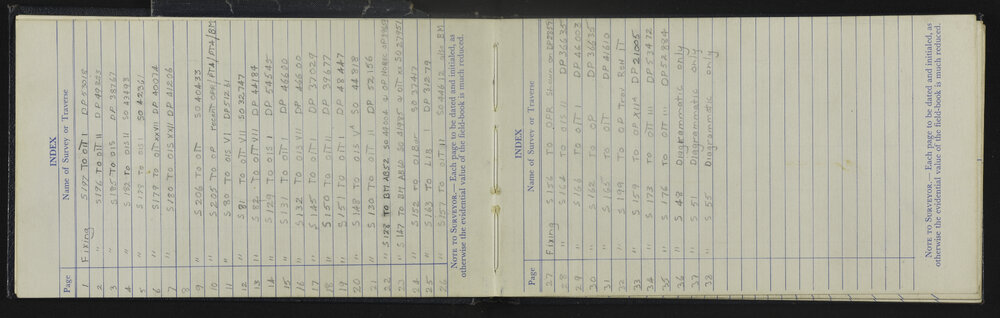 INDEX
Page Name of Survey or Traverse
1 Fixing S197 TO OIT I DP 53018
2 " S176 TO OIT II DP 49243
3 " S185 TO OIS DP 38267
4 " S182 TO OIS II SO 43493
5 " S178 TO OIS I SO 42361
6 " S179 TO OIT XXVII DP 40074
7 " S180 TO OIS XXII DP 41206
8
9 " S206 TO OIT SO 40433
10 " S205 TO OP
11 " S80 TO OIS VI DP 51261
12 " S81 TO OIT VII SO 32747
13 " S82 TO OIT VII DP 44184
14 " S129 TO OIS I DP 54545
15 " S131 TO OIT I DP 46600
16 " S132 TO OIS VII DP 46600
17 " S145 TO OIT I DP 37029
18 " S150 TO OIT II DP 37677
19 " S151 TO OIT I DP 48447
20 " S148 TO OIS SO 44818
21 " S130 TO OIT II DP 52156
22 " S128 TO BM AB52 SO 44904
23 " S147 TO BM AB60 SO 27951
24 " S152 TO SO 37447
25 " S163 TO I DP 31279
26 " S157 TO OIT II SO 44612 also BM
NOTE TO SURVEYOR.—Each page to be dated and initialed, as
otherwise the evidential value of the field-book is much reduced.
INDEX
Page Name of Survey or Traverse
27 Fixing S156 TO OPR shown on DP
28 " S164 TO OIS II DP 36635
29 " S166 TO OIT DP 46003
30 " S162 TO OP DP 36635
31 " S165 TO OIT DP 41610
32 " S199 TO OP Trav Ren IT
33 " S159 TO OP XII DP 21005
34 " S173 TO OIT III DP 53472
35 " S176 TO OIT III DP 52884
36 " S48 Diagrammatic only
37 " S51 Diagrammatic only
38 " S55 Diagrammatic only
NOTE TO SURVEYOR.—Each page to be dated and initialed, as
otherwise the evidential value of the field-book is much reduced.